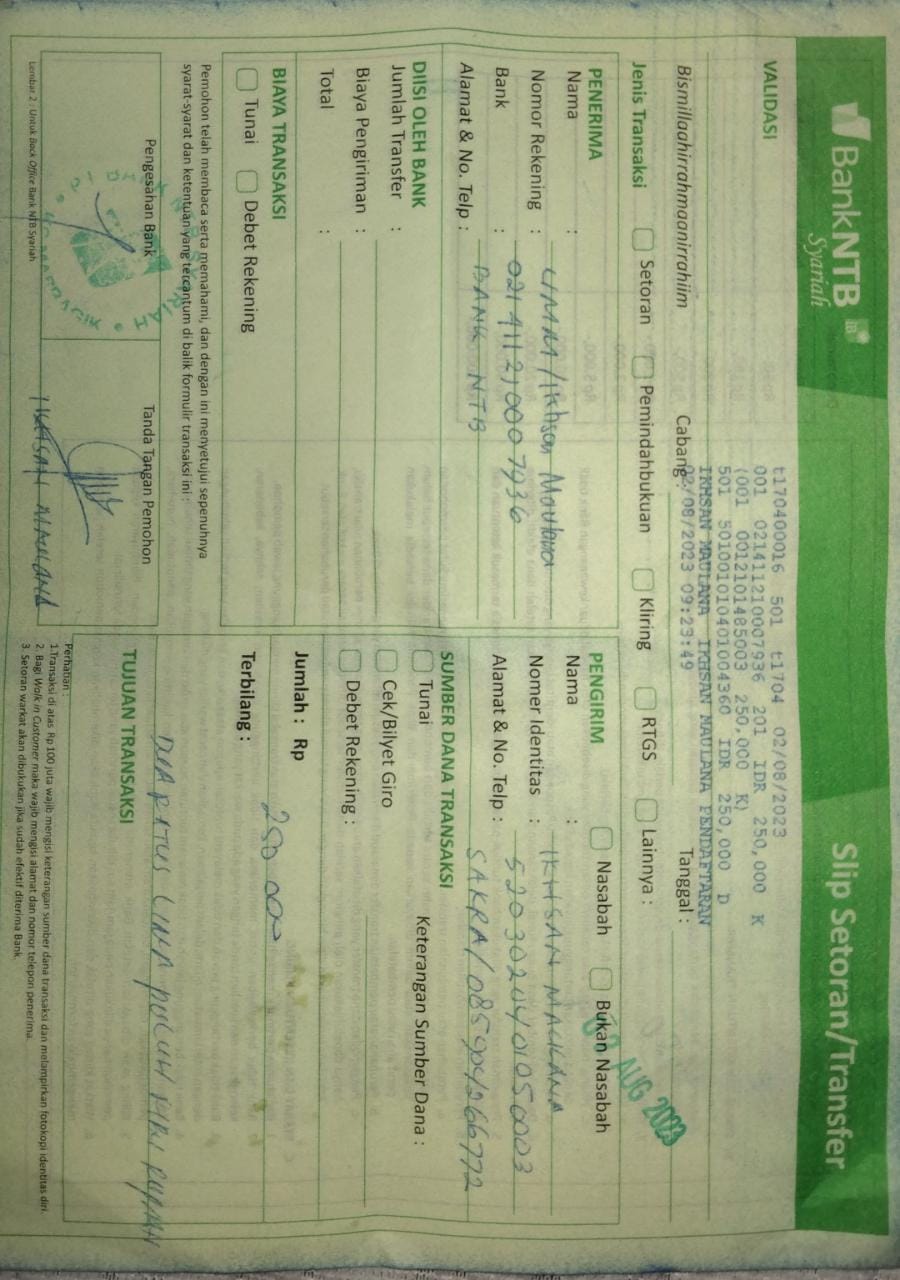 BankNTB
Syariah
Slip Setoran/Transfer
VALIDASI
t170400016 501 t1704 02/08/2023
001 021411210007936 201 IDR 250,000 K
(001 0012101485003 250,000 K)
501 501001010401004360 IDR 250,000 D
IKHSAN MAULANA IKHSAN MAULANA PENDAFTARAN
02/08/2023 09:23:49
Bismillaahirrahmaanirrahiim
Cabang :
Tanggal :
02 AUG 2023
Jenis Transaksi
Setoran
Pemindahbukuan
Kliring
RTGS
Lainnya :
PENERIMA
Nama : UMM/Ikhsan Maulana
Nomor Rekening : 021411210007936
Bank : BANK NTB
Alamat & No. Telp :
PENGIRIM
Nasabah
Bukan Nasabah
Nama : IKHSAN MAULANA
Nomer Identitas : 5203020401050003
Alamat & No. Telp : SAKRA/085904266772
DIISI OLEH BANK
Jumlah Transfer :
Biaya Pengiriman :
Total :
SUMBER DANA TRANSAKSI
Tunai
Keterangan Sumber Dana :
Cek/Bilyet Giro
Debet Rekening :
BIAYA TRANSAKSI
Tunai
Debet Rekening
Jumlah : Rp 250 000
Terbilang :
DUA RATUS LIMA PULUH RIBU RUPIAH
Pemohon telah membaca serta memahami, dan dengan ini menyetujui sepenuhnya
syarat-syarat dan ketentuan yang tercantum di balik formulir transaksi ini :
TUJUAN TRANSAKSI
Pengesahan Bank
Tanda Tangan Pemohon
IKHSAN MAULANA
Perhatian :
1.Transaksi di atas Rp 100 juta wajib mengisi keterangan sumber dana transaksi dan melampirkan fotokopi identitas diri.
2. Bagi Walk in Customer maka wajib mengisi alamat dan nomor telepon penerima.
3. Setoran warkat akan dibukukan jika sudah efektif diterima Bank.
Lembar 2 : Untuk Back Office Bank NTB Syariah